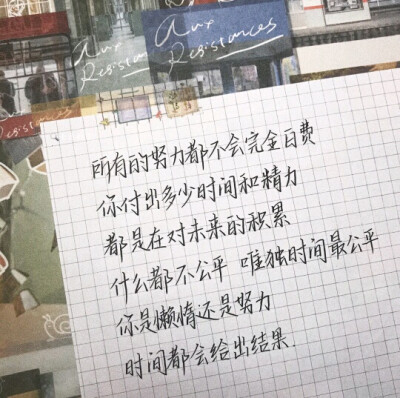 Aux
Resistances
Aux
Resistances
所有的努力都不会完全白费
你付出多少时间和精力
都是在对未来的积累
什么都不公平 唯独时间最公平
你是懒惰还是努力
时间都会给出结果.